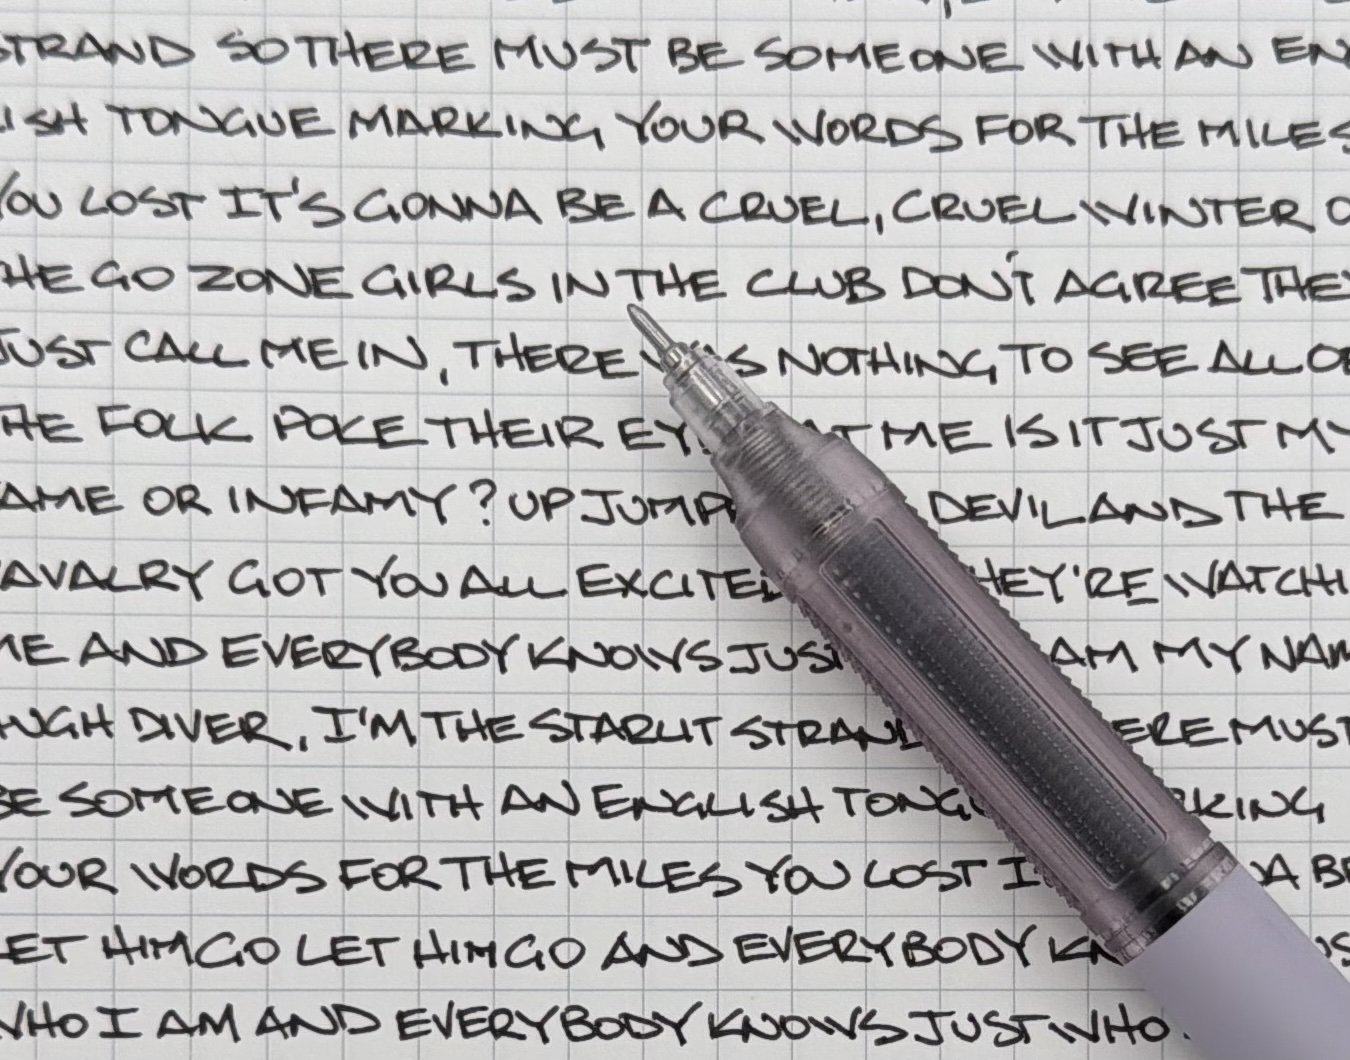 STRAND SO THERE MUST BE SOMEONE WITH AN EN
ISH TONGUE MARKING YOUR WORDS FOR THE MILES
YOU LOST IT'S GONNA BE A CRUEL, CRUEL WINTER O
HE GO ZONE GIRLS IN THE CLUB DON'T AGREE THEY
JUST CALL ME IN, THERE NOTHING TO SEE ALL OF
THE FOLK POKE THEIR AT ME IS IT JUST MY
AME OR INFAMY? UP DEVIL AND THE
AVALRY GOT YOU ALL EXCITED HEY'RE WATCHI
ME AND EVERYBODY KNOWS JUST AM MY NAM
OUGH DIVER, I'M THE STARLIT STRAND ERE MUST
BE SOMEONE WITH AN ENGLISH TONGU RKING
YOUR WORDS FOR THE MILES YOU LOST I A BE
LET HIM GO LET HIM GO AND EVERYBODY KN
WHO I AM AND EVERYBODY KNOWS JUST WHO.